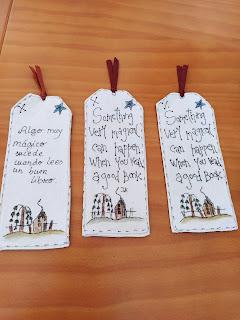 Algo muy
mágico
sucede
cuando lees
un buen
libro.
Something
Very magical
can happen
When you read
a good Book.
Something
Very magical
can happen
When you read
a good Book